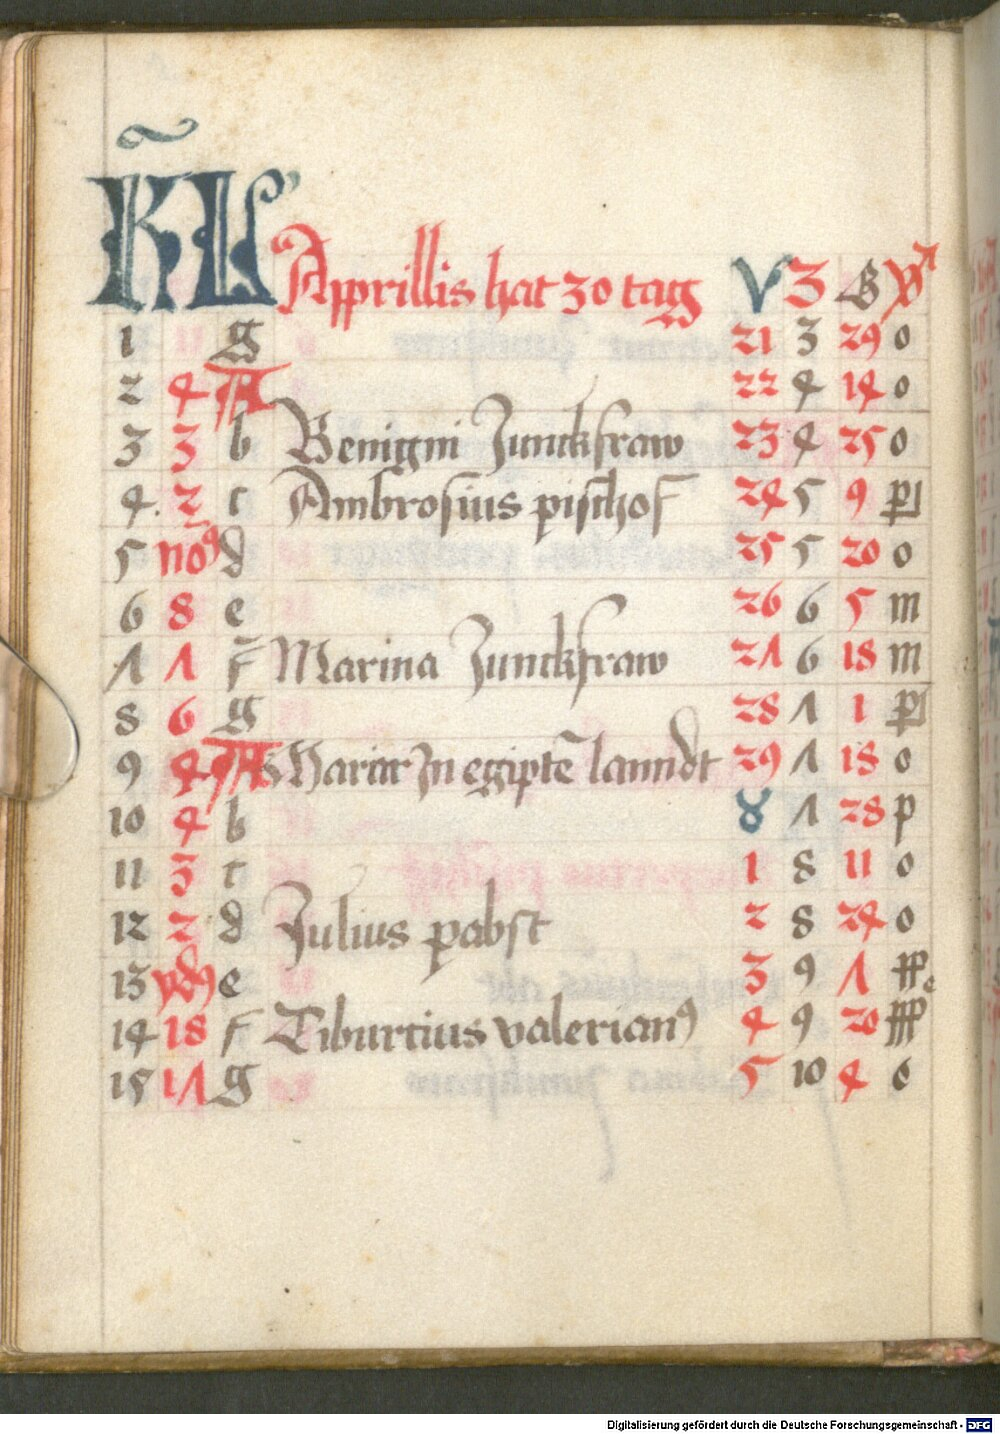 KL Apprillis hat 30 tag V 3 G
1 g 21 3 29 0
2 4 A 22 4 14 0
3 3 b Benigni Junckfraw 23 4 25 0
4 2 c Ambrosius pischof 24 5 9
5 noꝰ d 25 5 20 0
6 8 e 26 6 5 m
7 7 f Marina Junckfraw 27 6 18 m
8 6 g 28 7 1
9 A Maria Jn egiptē lanndt 29 7 18 0
10 4 b ♉ 7 28 p
11 3 c 1 8 11 0
12 2 d Julius pabst 2 8 24 0
13 ydꝰ e 3 9 7
14 18 f Tiburtius valerianꝰ 4 9 20
15 17 g 5 10 4 6
Digitalisierung gefördert durch die Deutsche Forschungsgemeinschaft - DFG